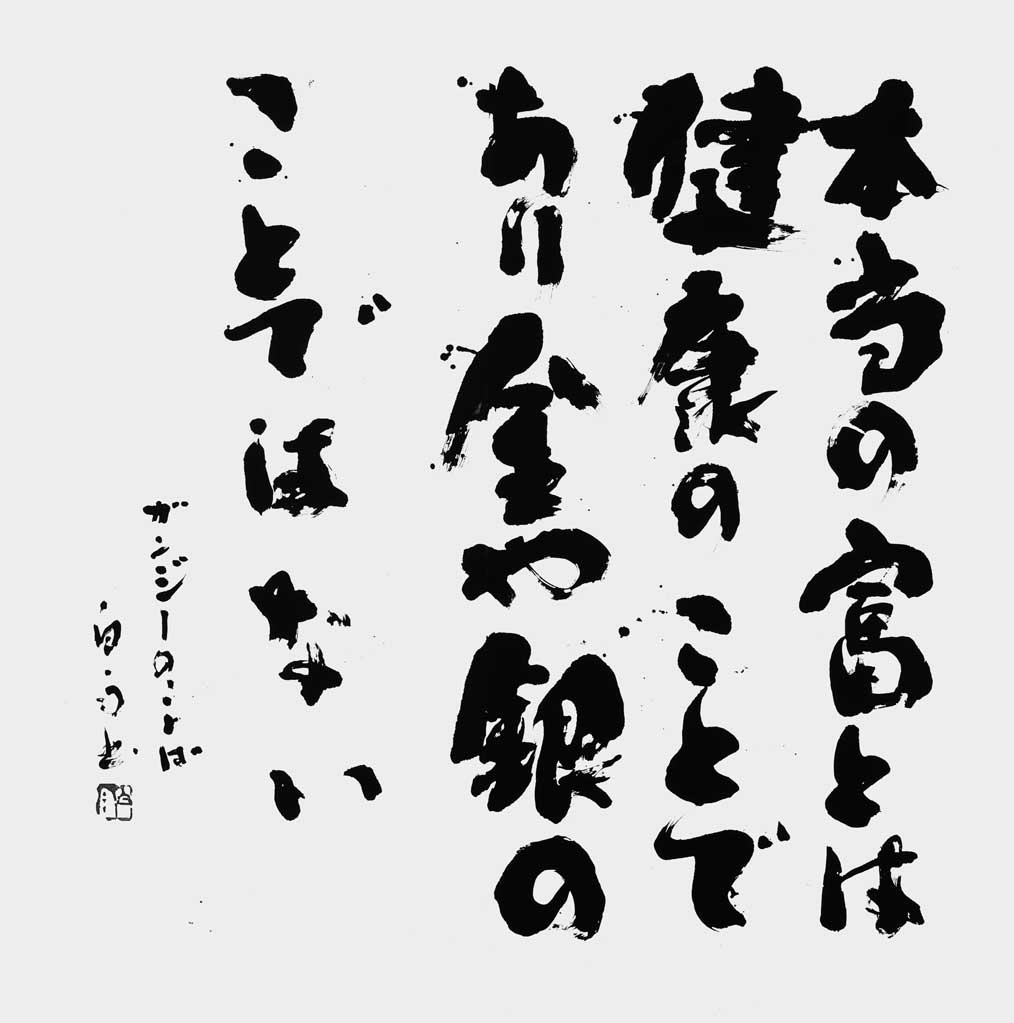 本当の富とは
健康のことで
あり金や銀の
ことではない
ガンジーのことば